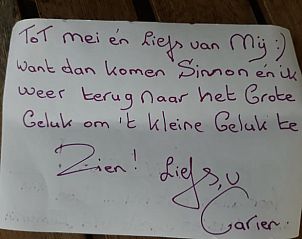 Tot mei én Liefs van Mij :)
want dan komen Simon en ik
weer terug naar het Grote
Geluk om 't kleine Geluk te
Zien! Liefs, u
Carien.